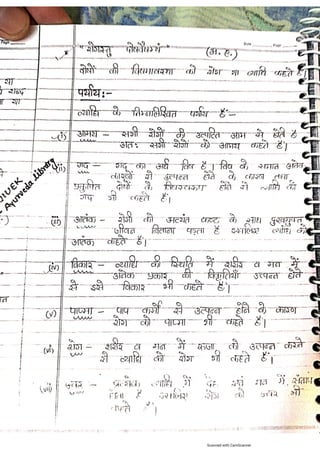 "रोगस्तु दोषवैषम्यं" (अ.ह.)
दोषों की विषमावस्था को रोग या व्याधि कहते हैं।
पर्याय:-
व्याधि के निम्नलिखित पर्याय हैं:-
(i) आमय - सभी रोगों की उत्पत्ति आम से होती है
अतः सभी रोगों को आमय कहते हैं।
(ii) गद - गद का अर्थ विष है। विष के समान अनेक
कारणों से उत्पन्न होने के कारण तथा
दोषों के होने से व्याधि को
गद भी कहते हैं।
(iii) आतंक - रोगी को अत्यंत कष्ट के साथ
जीवन बिताना पड़ता है इसलिए व्याधि को
आतंक कहते हैं।
(iv) विकार - व्याधि की स्थिति में शरीर व मन में
अनेक प्रकार की विकृतियां उत्पन्न होने
से इसे विकार भी कहते हैं।
(v) पाप्मा - पाप कर्मों से उत्पन्न होने के कारण
रोग को पाप्मा भी कहते हैं।
(vi) रोग - शरीर व मन में रुजा को उत्पन्न करने
से व्याधि को रोग भी कहते हैं।
(vii) ज्वर - प्रत्येक व्याधि में देह एवं मन में संताप
होता है इसलिए रोग को ज्वर भी
कहते हैं।
VIVEK
Ayurveda Library
Scanned with CamScanner